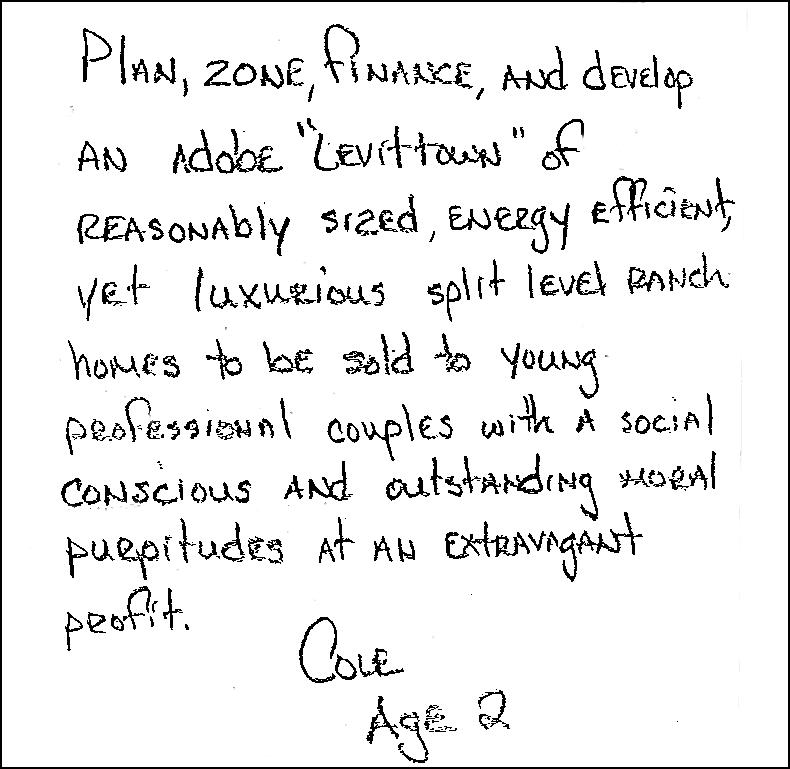 Plan, zone, finance, and develop
an adobe "Levittown" of
reasonably sized, energy efficient,
yet luxurious split level ranch
homes to be sold to young
professional couples with a social
conscious and outstanding moral
purpitudes at an extravagant
profit.
Cole
Age 2